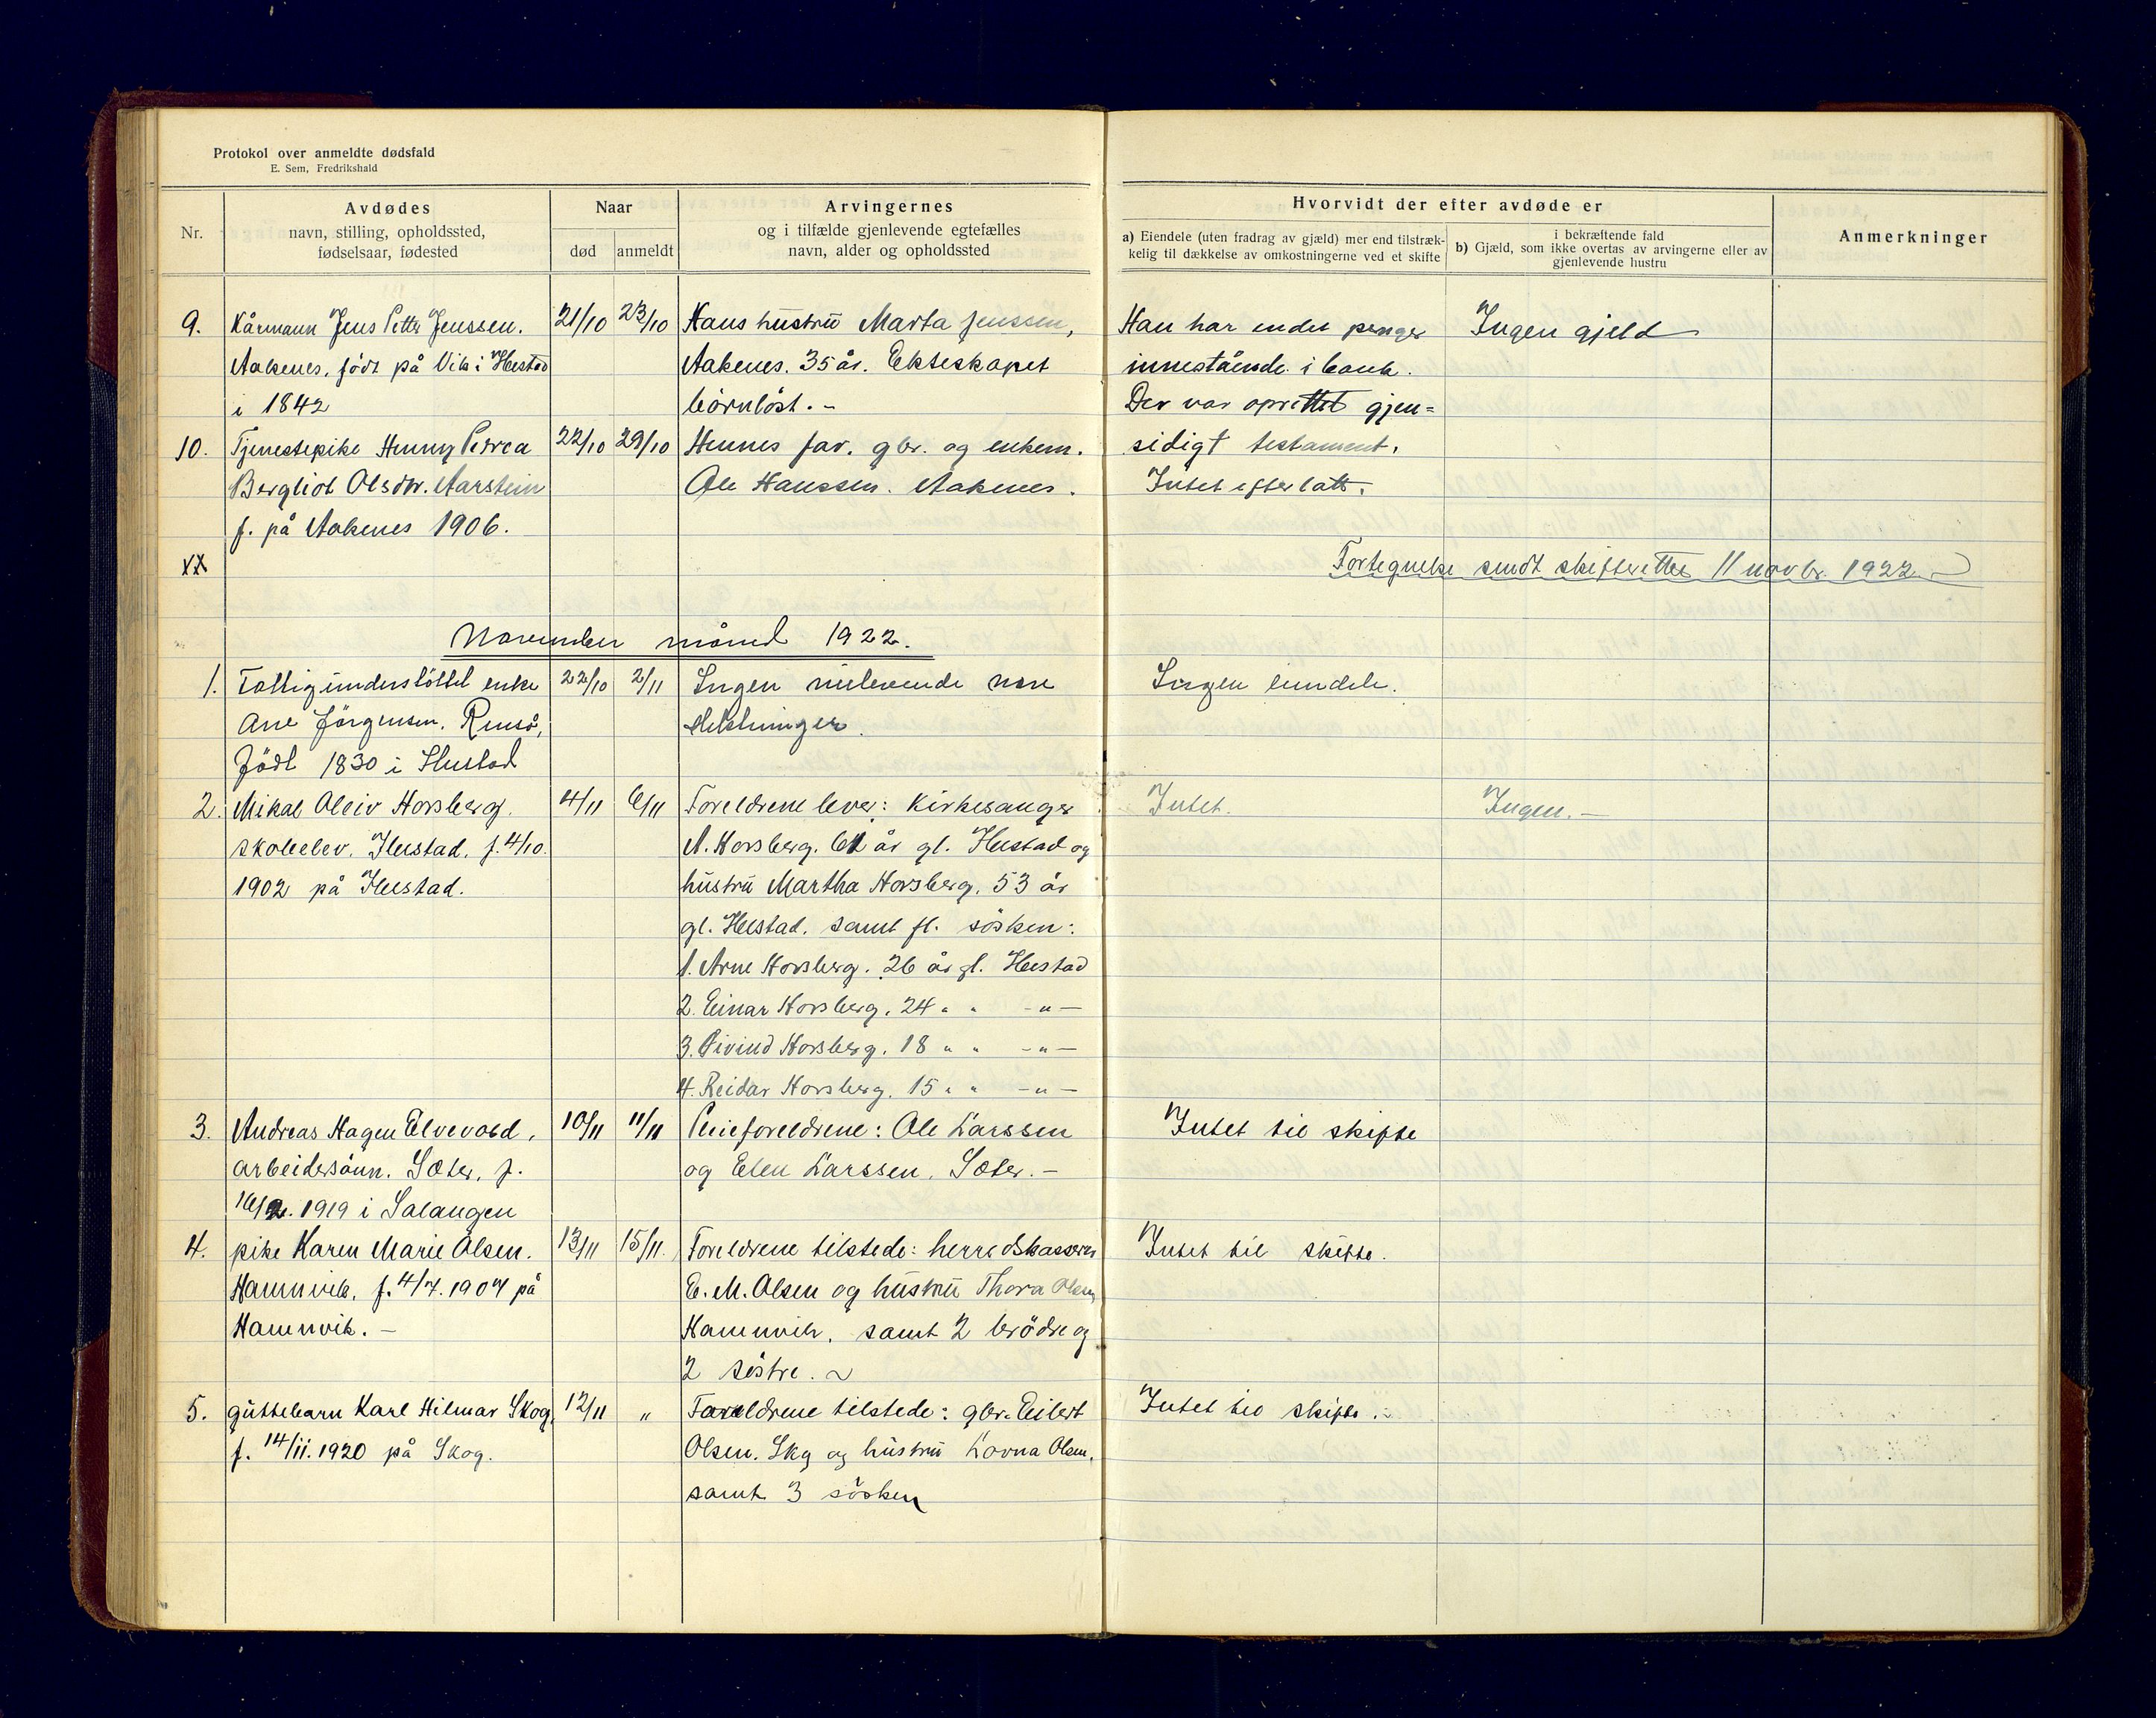 Protokol over anmeldte dødsfald
E. Sem, Fredrikshald
Nr.
Avdødes
navn, stilling, opholdssted,
fødselsaar, fødested
Naar
død
anmeldt
Arvingernes
og i tilfælde gjenlevende egtefælles
navn, alder og opholdssted
Hvorvidt der efter avdøde er
a) Eiendele (uten fradrag av gjæld) mer end tilstræk-
kelig til dækkelse av omkostningerne ved et skifte
i bekræftende fald
b) Gjæld, som ikke overtas av arvingerne eller av
gjenlevende hustru
Anmerkninger
9. Kårmann Jens Petter Jenssen. 21/10 23/10 Hans hustru Marta Jenssen, Han har endel penger Ingen gjeld
Aakenes, født på Vik i Hestad Aakenes. 35 år. Ekteskapet innestående i bank.
i 1842 börnlöst. - Der var oprettet gjen=
10. Tjenestepike Henny Perrea 22/10 29/10 Hennes far. gbr. og enkem. sidigt testament.
Bergliot Olsdtr. Aarstein Ole Hanssen. Aakenes. Intet efterlatt.
f. på Aakenes 1906.
XX Fortegnelse sendt skifteretten 11 novbr. 1922
November måned 1922.
1. Fattigunderstöttet enke 22/10 2/11 Ingen nulevende nære Ingen eiendele.
Ane Jörgensen. Renså, slektninger.
Födt 1830 i Hustad
2. Mikal Oleiv Horsberg. 4/11 6/11 Foreldrene lever: Kirkesanger Intet. Ingen. -
skoleelev. Ibestad. f. 4/10. A. Horsberg. 61 år gl. Ibestad og
1902 på Ibestad. hustru Martha Horsberg, 53 år
gl. Ibestad. samt fl. sösken:
1. Arne Horsberg. 26 år gl. Ibestad
2. Einar Horsberg. 24 " " - " -
3. Öivind Horsberg. 18 " " - " -
4. Reidar Horsberg. 15 " " - " -
3. Andreas Hagen Elvevold, 10/11 11/11 Pleieforeldrene: Ole Larssen Intet til skifte
arbeidersönn. Sæter. f. og Elen Larssen, Sæter. -
16/2. 1919 i Salangen
4. pike Karen Marie Olsen. 13/11 15/11. Foreldrene tilstede: herredskasserer Intet til skifte.
Hamnvik. f. 4/7. 1907 på E. M. Olsen og hustru Thora Olsen,
Hamnvik. - Hamnvik, samt 2 brödre og
2 söstre.
5. guttebarn Karl Hilmar Skog, 12/11 " Foreldrene tilstede: gbr. Eilert Intet til skifte.
f. 14/11. 1920 på Skog. Olsen. Skg og hustru Lovna Olsen.
samt 3 sösken